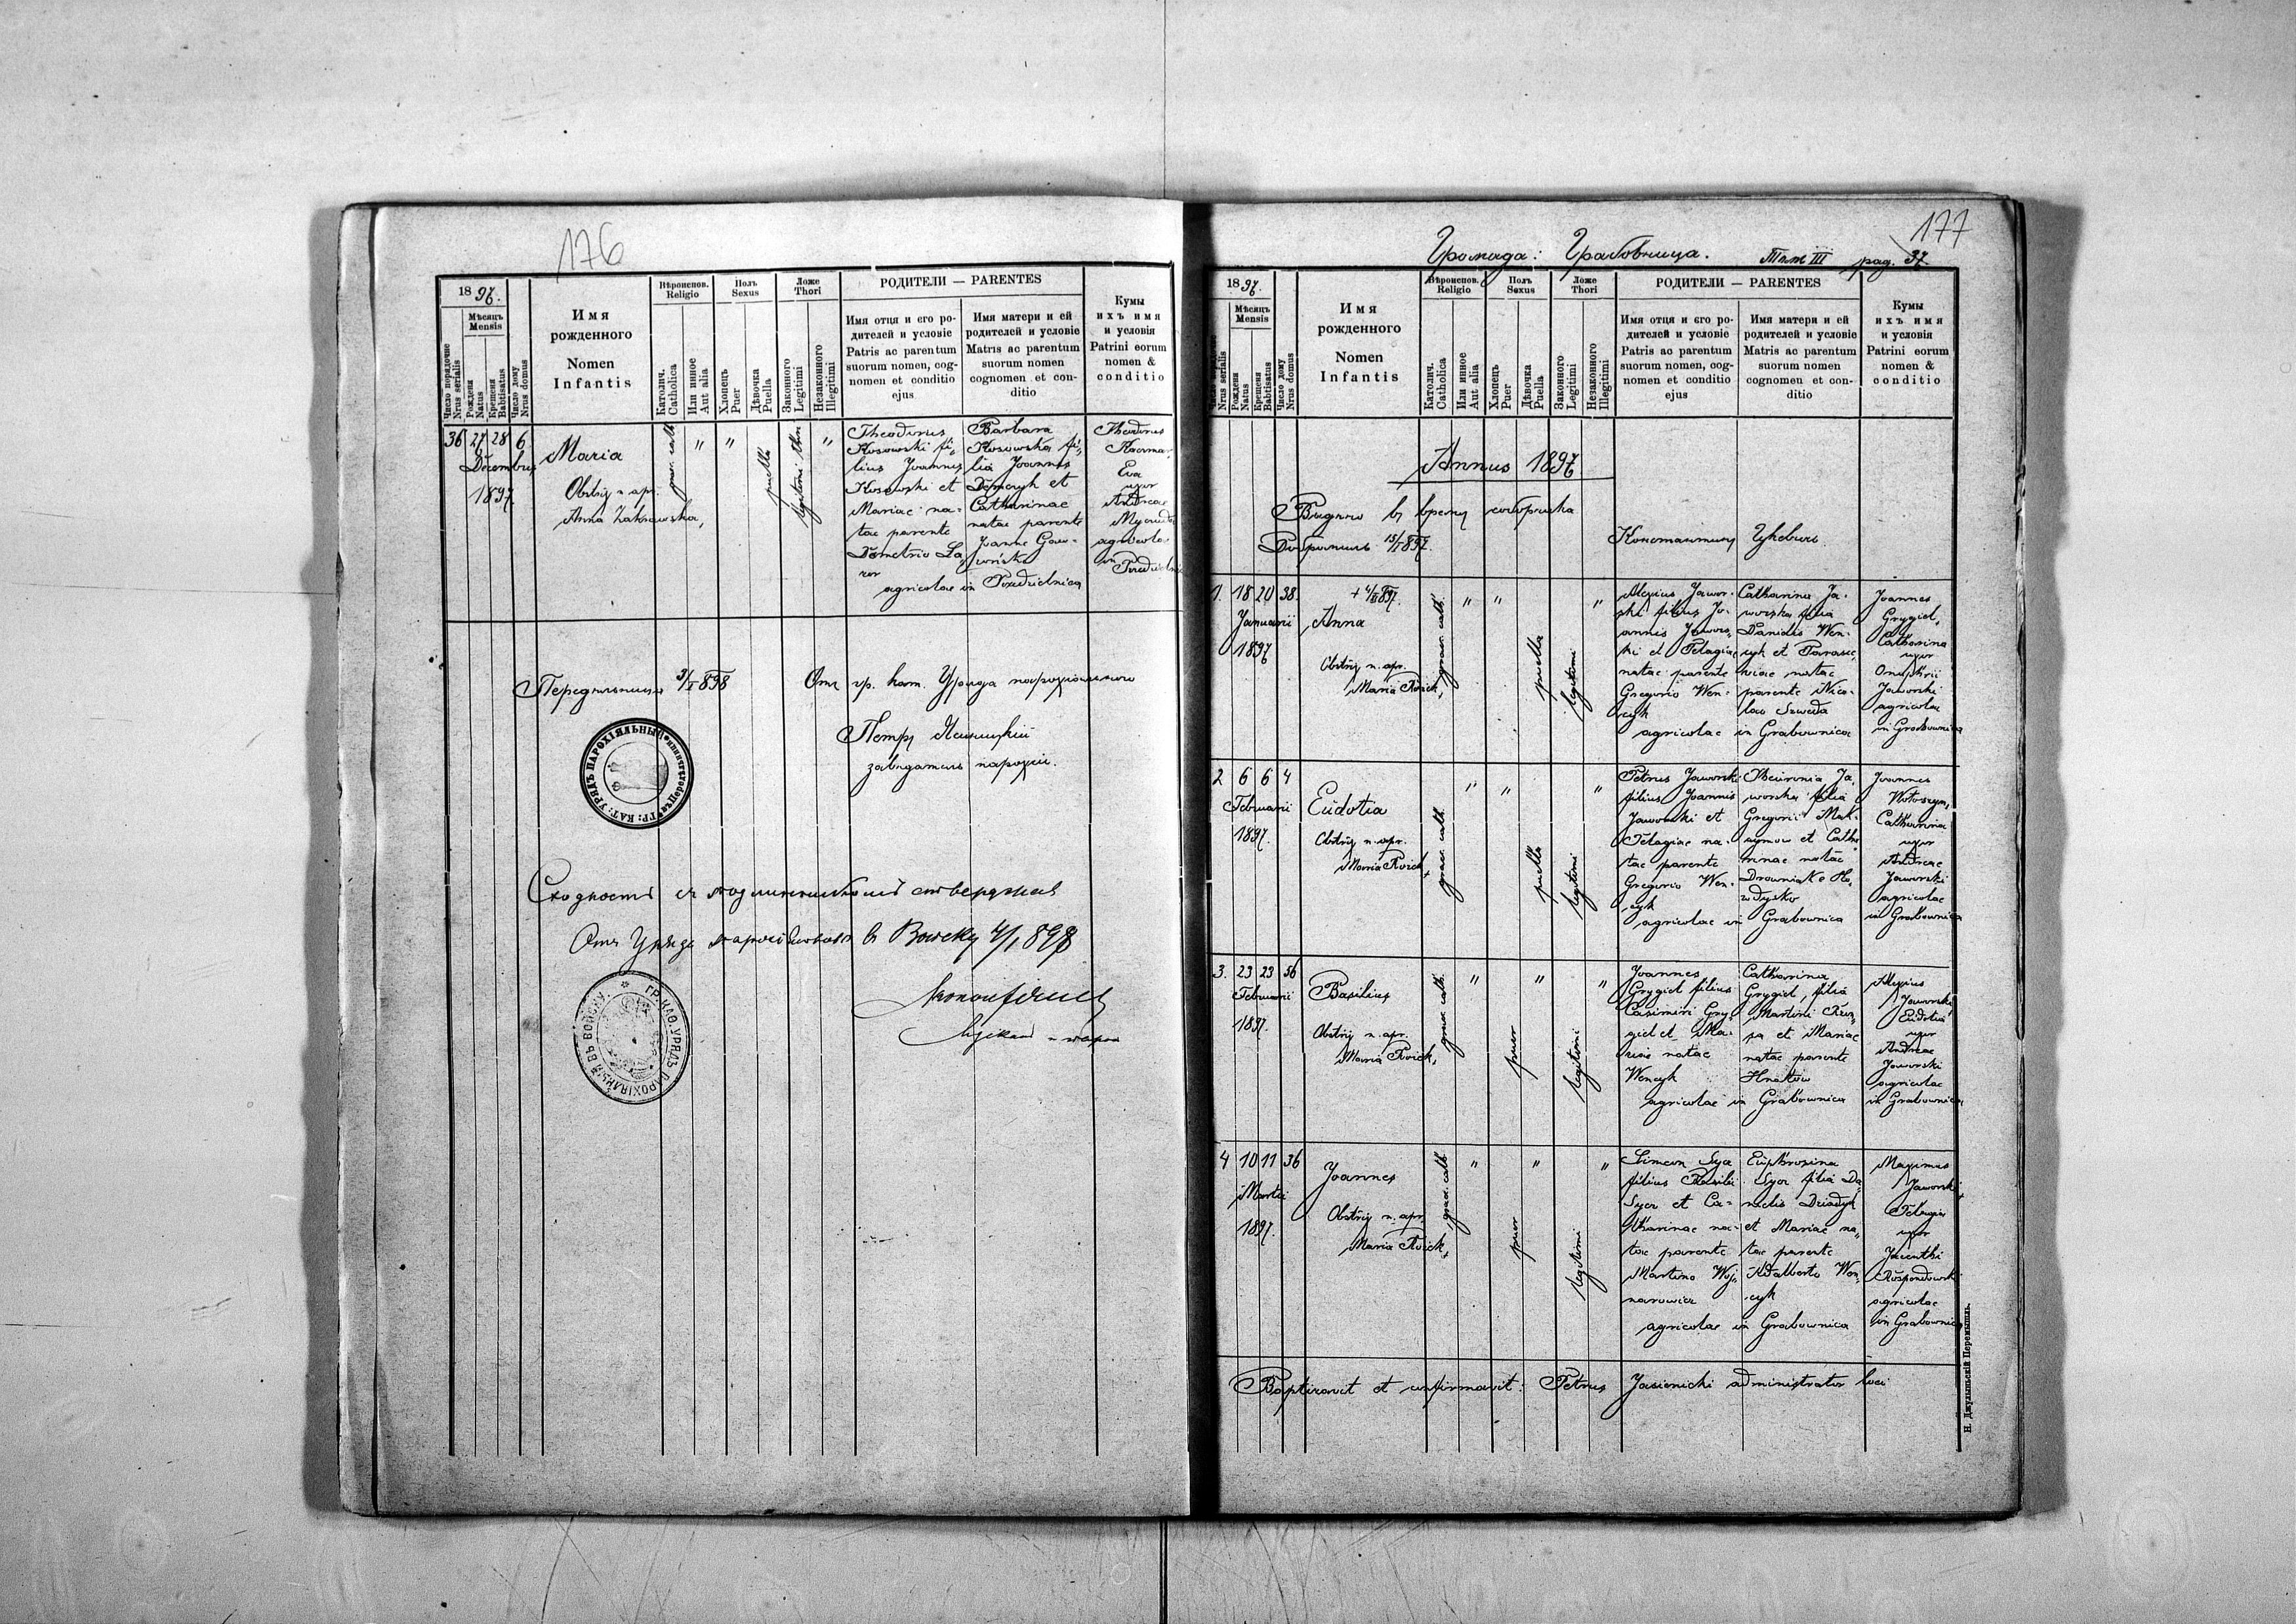 176
18 97.
Мѣсяцъ
Mensis
Число порядочне
Nrus serialis
Рожденя
Natus
Крещеня
Babtisatus
Число дому
Nrus domus
Имя
рожденного
Nomen
Infantis
Вѣроиспов.
Religio
Католич.
Catholica
Или инное
Aut alia
Полъ
Sexus
Хлопець
Puer
Дѣвочка
Puella
Ложе
Thori
Законного
Legitimi
Незаконного
Illegitimi
РОДИТЕЛИ — PARENTES
Имя отця и его ро-
дителей и условіе
Patris ac parentum
suorum nomen, cog-
nomen et conditio
ejus
Имя матери и ей
родителей и условіе
Matris ac parentum
suorum nomen
cognomen et con-
ditio
Кумы
ихъ имя
и условія
Patrini eorum
nomen &
conditio
36 27 28 6
Decembris
1897.
Maria
Obstrix n. apr.
Anna Zakrowska,
graec. cath.
" "
puella
legitimi thori
"
Theodorus
Kosowski fi-
lius Joannis
Kosowski et
Mariae na-
tae parente
Demetrio La-
zor
Barbara
Kosowska fi-
lia Joannis
Demczyk et
Catharinae
natae parente
Joanne Gaw-
wińska
agricolae in Poździelnica
Theodorus
Kaczmar
Eva
uxor
Andreae
agricolae
in
3/I 898
Отъ гр. кат. Уряда парохіяльного
Петръ Ясиницкій
завѣдатель парохіи.
ГР: КАТ: УРЯДЪ ПАРОХІЯЛЬНЫЙ
Сходность съ подлинникомъ стверджає
Отъ Уряда парохіяльного въ Войску 4/I 898
ГР. КАΘ. УРЯДЪ ПАРОХІЯЛЬНЫЙ ВЪ ВОЙСКУ.
177
Громада: Грабовница. Томъ III pag. 37.
18 97.
Мѣсяцъ
Mensis
Nrus serialis
Рожденя
Natus
Крещеня
Babtisatus
Число дому
Nrus domus
Имя
рожденного
Nomen
Infantis
Вѣроиспов.
Religio
Католич.
Catholica
Или инное
Aut alia
Полъ
Sexus
Хлопець
Puer
Дѣвочка
Puella
Ложе
Thori
Законного
Legitimi
Незаконного
Illegitimi
РОДИТЕЛИ — PARENTES
Имя отця и его ро-
дителей и условіе
Patris ac parentum
suorum nomen, cog-
nomen et conditio
ejus
Имя матери и ей
родителей и условіе
Matris ac parentum
suorum nomen
cognomen et con-
ditio
Кумы
ихъ имя
и условія
Patrini eorum
nomen &
conditio
Annus 1897
Видѣно въ время соборчика
Добромиль 15/I 897.
Константинъ
1. 18 20 38.
Januarii
1897
Anna
Obstrix n. apr.
Maria Roick,
graec. cath.
" "
puella
legitimi
"
Alexius Jawor-
ski filius Jo-
annis Jawors-
ki et Pelagiae
natae parente
Gregorio Wen-
cyk
Catharina Ja-
worska filia
Danielis Wen-
cyk et Parasce-
wiae natae
parente Nico-
lao Szweda
agricolae in Grabownica
Joannes
Grygiel,
Catharina
uxor
Onuphrii
Jaworski
agricolae
in Grabownica
2 6 6 4
Februarii
1897.
Eudotia
Obstrix n. apr.
Maria Roick,
graec. cath.
" "
puella
legitimi
"
Petrus Jaworski
filius Joannis
Jaworski et
Pelagiae na-
tae parente
Gregorio Wen-
cyk
Theuronia Ja-
worska filia
Gregorii Mak-
symow et Catha-
rinae natae
agricolae in Grabownica
Joannes
Wołoszyn,
Catharina
uxor
Andreae
Jaworski
agricolae
in Grabownica
3. 23 23 56
Februarii
1897.
Basilius
Obstrix n. apr.
Maria Roick,
graec. cath.
"
puer
"
legitimi
"
Joannes
Grygiel filius
Casimiri Gry-
giel et Ma-
riae natae
Wencyk
Catharina
Grygiel, filia
Martini Rum-
pa et Mariae
natae parente
Hnatów
agricolae in Grabownica
Alexius
Jaworski,
Eudotia
uxor
Andreae
Jaworski
agricolae
in Grabownica
4 10 11 36
Martii
1897.
Joannes
Obstrix n. apr.
Maria Roick,
graec. cath.
"
puer
"
legitimi
"
Simeon Sya
filius Basilii
Sycz et Ca-
tharinae na-
tae parente
Martino Woj-
narowicz
Euphrosina
Sycz filia Da-
nielis Dziadyk
et Mariae na-
tae parente
Adalberto Wen-
cyk
agricolae in Grabownica
Maximus
Jaworski,
Pelagia
uxor
Jacenthi
Rospondowski
agricolae
in Grabownica
Baptisavit et confirmavit: Petrus Jasienicki administrator loci
Н. Джулыньскій Перемышль.